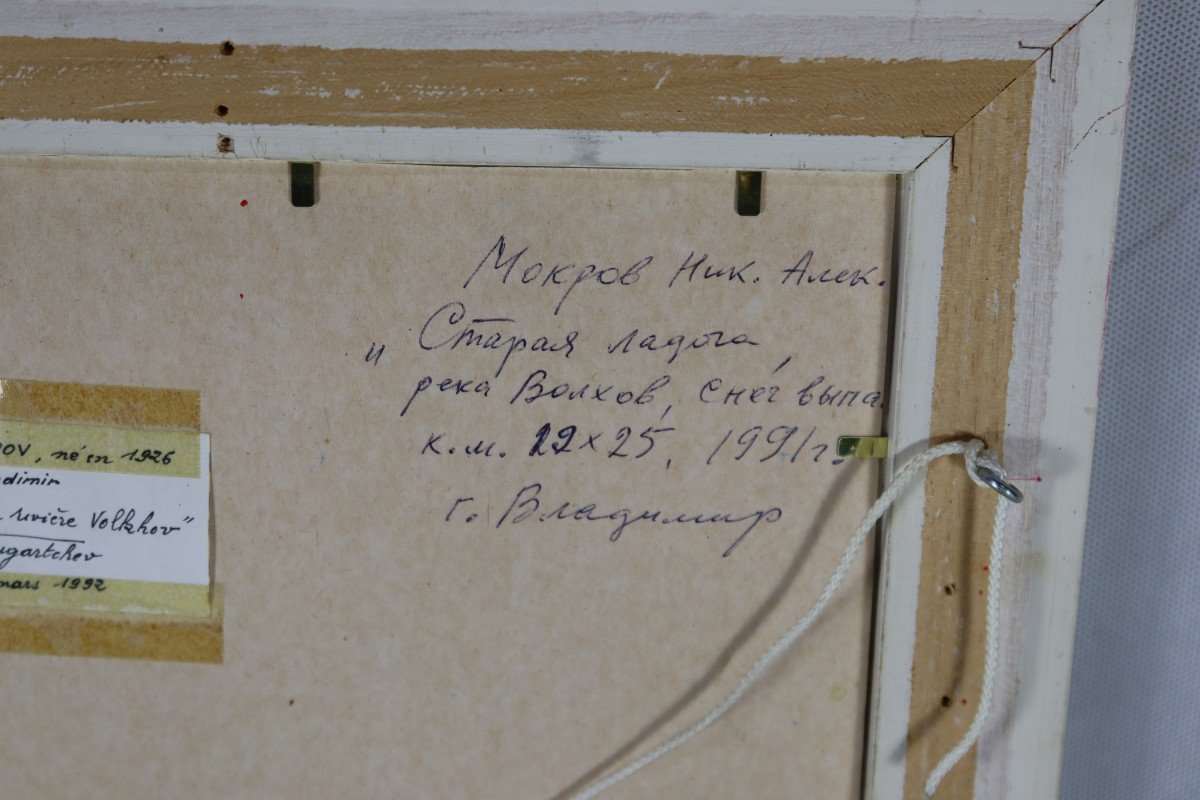 Мокров Ник. Алек.
„ Старая ладога,
река Волхов, снег выпа
к.м. 22×25, 1991г.
г. Владимир
OV, né en 1926
dimir
rivière Volkhov"
gartchev
mars 1992